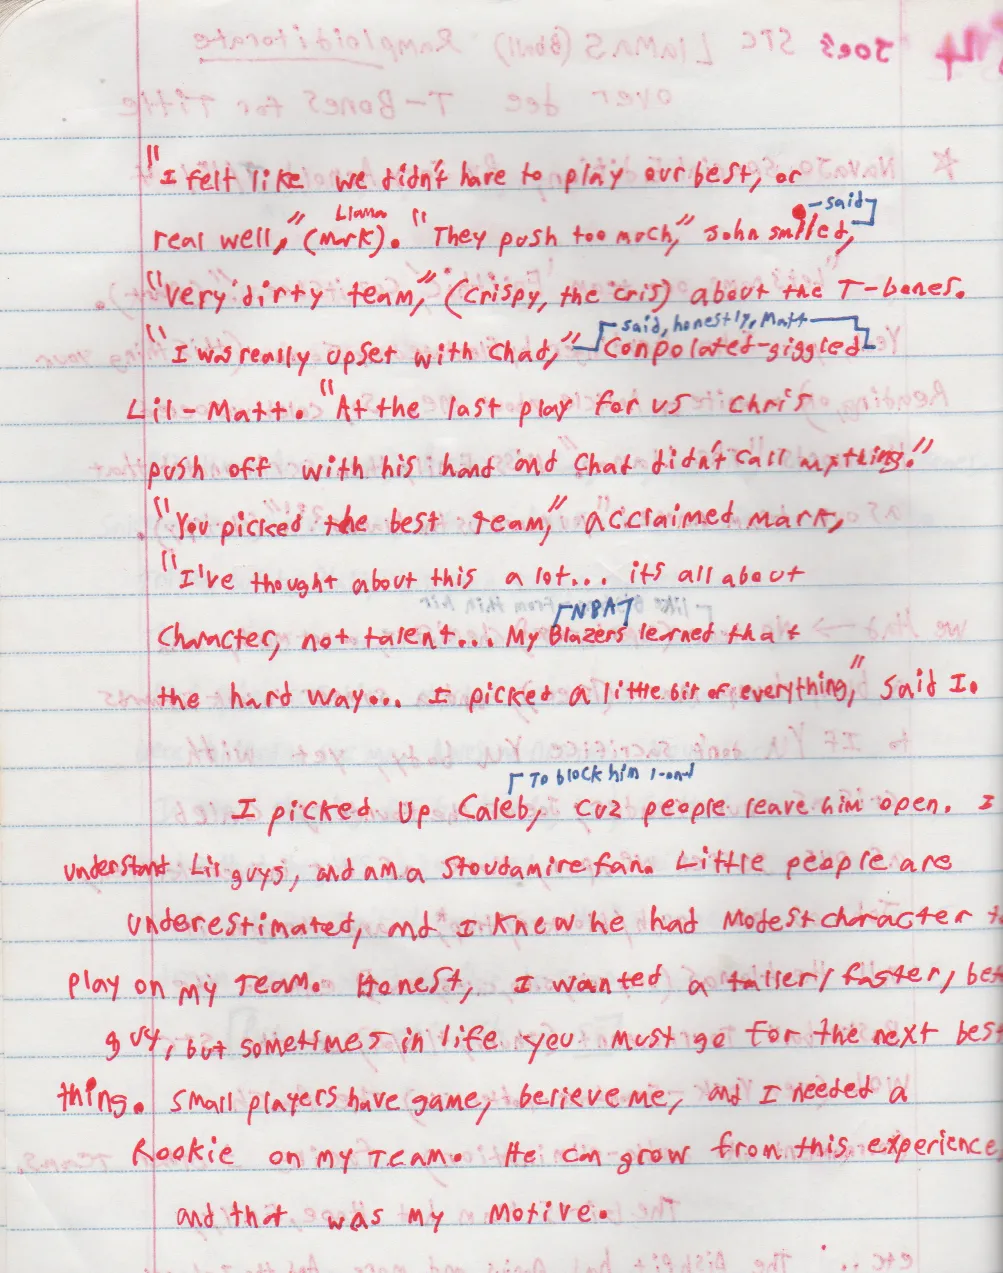 "I felt like we didn't have to play our best, or
real well," (Mark). Llama "They push too much," John smiled, - said
"very dirty team," (crispy, the cris) about the T-bones.
"I was really upset with Chad," Conpolated-giggled said, honestly, Matt
Lil-Matt. "At the last play for us Chris
push off with his hand and Chad didn't call anything."
"You picked the best team," acclaimed Mark,
"I've thought about this a lot... its all about
Character, not talent... My Blazers learned that NBA
the hard way... I picked a little bit of everything," said I.
To block him 1-on-1
I picked up Caleb, cuz people leave him open. I
understand Lil guys, and am a Stoudamire fan. Little people are
underestimated, and I knew he had modest character t
play on my team. Honest, I wanted a taller/faster/bet
guy, but sometimes in life you must go for the next best
thing. Small players have game, believe me, and I needed a
Rookie on my team. He can grow from this experience,
and that was my motive.